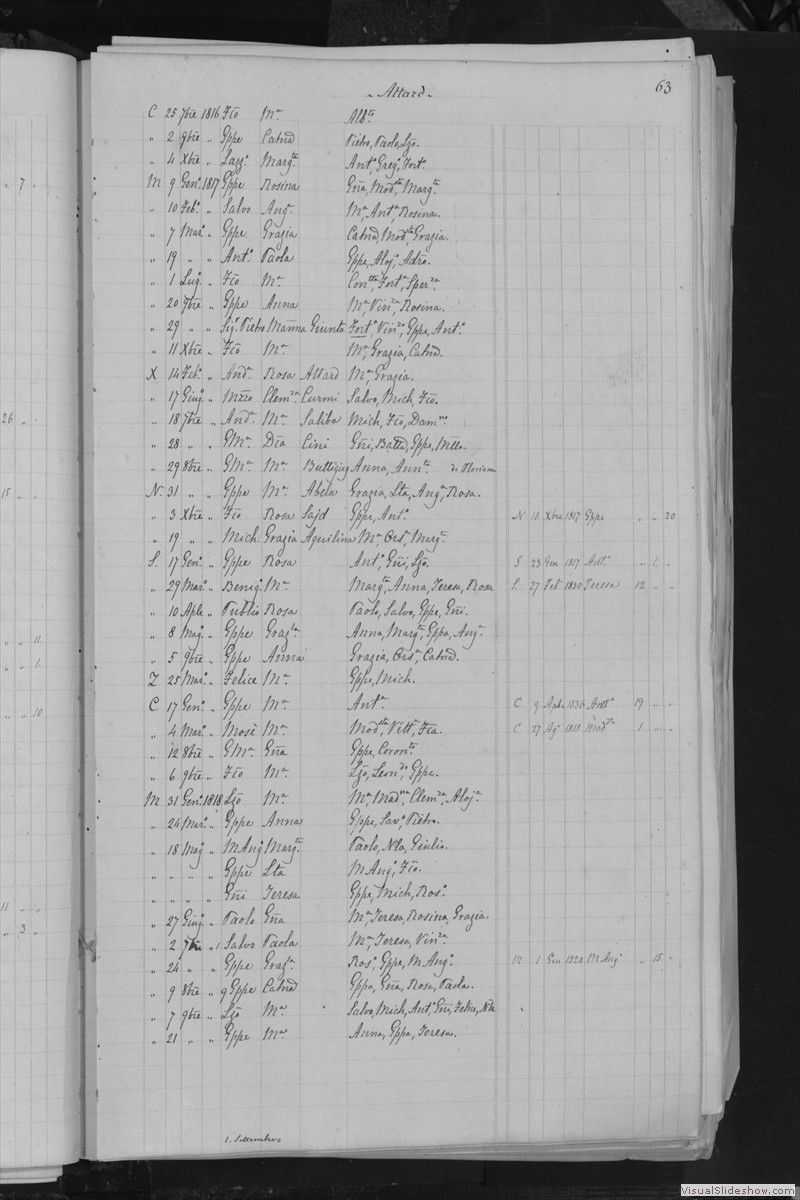 63
- Attard -
C 25 7bre 1816 Fco Ma. Albta.
" 2 9bre " Gppe Catnd Pietro, Paolo, Lzo.
" 4 Xbre " Lazzo Margta. Anto, Grego, Forto.
M 9 Geno. 1817 Gppe Rosina Gña, Modsta, Margta.
" 10 Febo. " Salvo Anga. Ma, Anta, Rosina.
" 7 Marzo. " Gppe Grazia Catnd, Modsta, Grazia.
" 19 " " Anto. Paola Gppe, Alojo, Adro.
" 1 Lugo. " Fco Ma. Contta, Forta, Sperza.
" 20 7bre " Gppe Anna Ma, Vinza, Rosina.
" 29 " " Sigr. Pietro Marina Giunta Forto, Vinzo, Gppe, Anto.
" 11 Xbre " Fco Ma. Ma, Grazia, Catnd.
X 14 Febo. " Anda. Rosa Attard Ma, Grazia.
" 17 Giugo. " Mzio Clemza. Curmi Salvo, Mich, Fco.
" 18 7bre " Anda. Ma. Saliba Mich, Fco, Damno
" 28 " " GMa. Dia Cini Gñi, Batta, Gppe, Mtto.
" 29 8bre " GMa. Ma. Buttigieg Anna, Annta. da Floriana
N. 31 " " Gppe Ma. Abela Grazia, Lta, Anga, Rosa.
" 3 Xbre " Fco Rosa Sajd Gppe, Anto. N 15 Xbre 1817 Gppe " " 20
" 19 " " Mich Grazia Aquilina Ma, Orsa, Marga.
S. 17 Geno. " Gppe Rosa Anto, Gñi, Lzo. S 23 Gen 1817 Anto. " 1 "
" 29 Marzo. " Benigo. Ma. Margta, Anna, Teresa, Rosa S. 27 Febo. 1830 Teresa 12 " "
" 10 Aple " Publio Rosa Paolo, Salvo, Gppe, Gñi.
" 8 Mago. " Gppe Grazla. Anna, Margta, Gppa, Anga.
" 5 9bre " Gppe Anna Grazia, Orsa, Catnd.
Z 25 Marzo. " Felice Ma. Gppe, Mich.
C 17 Geno. " Gppe Ma. Anta. C 9 Aple 1836 Anta 19 " "
" 4 Marzo. " Mosè Ma. Modsta, Vitta, Fca. C 27 Ago. 1818 Modsta 1 " "
" 12 8bre " GMa. Gña Gppe, Coronta.
" 6 9bre " Fco Ma. Lzo, Leondo, Gppe.
M 31 Geno. 1818 Lzo Ma. Ma, Madna, Clemza, Aloja.
" 24 Marzo. " Gppe Anna Gppe, Savo, Pietro.
" 18 Mag " MAngo Margta. Paolo, Nla, Giulio.
" " " " Gppe Lta MAngo, Fco.
" " " " Gñi Teresa Gppe, Mich, Roso.
" 27 Giugo. " Paolo Gña Ma, Teresa, Rosina, Grazia.
" 2 7bre " 1. Salvo Paola Ma, Teresa, Vinza.
" 24 " " Gppe Grazla. Roso, Gppe, MAngo. M 1 Gen 1820 MAngo " 15 "
" 9 8bre " 9 Gppe Catnd Gppa, Gña, Rosa, Paola.
" 7 9bre " Lzo Ma. Salvo, Mich, Anto, Gñi, Felice, Nla
" 21 " " Gppe Ma. Anna, Gppa, Teresa.
1. Settembre
7
26
15
11
1
10
11
3
VisualSlideshow.com